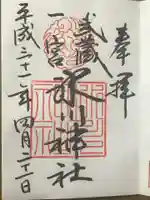 奉拝
武蔵
一宮
氷川神社
平成三十一年四月二十一日